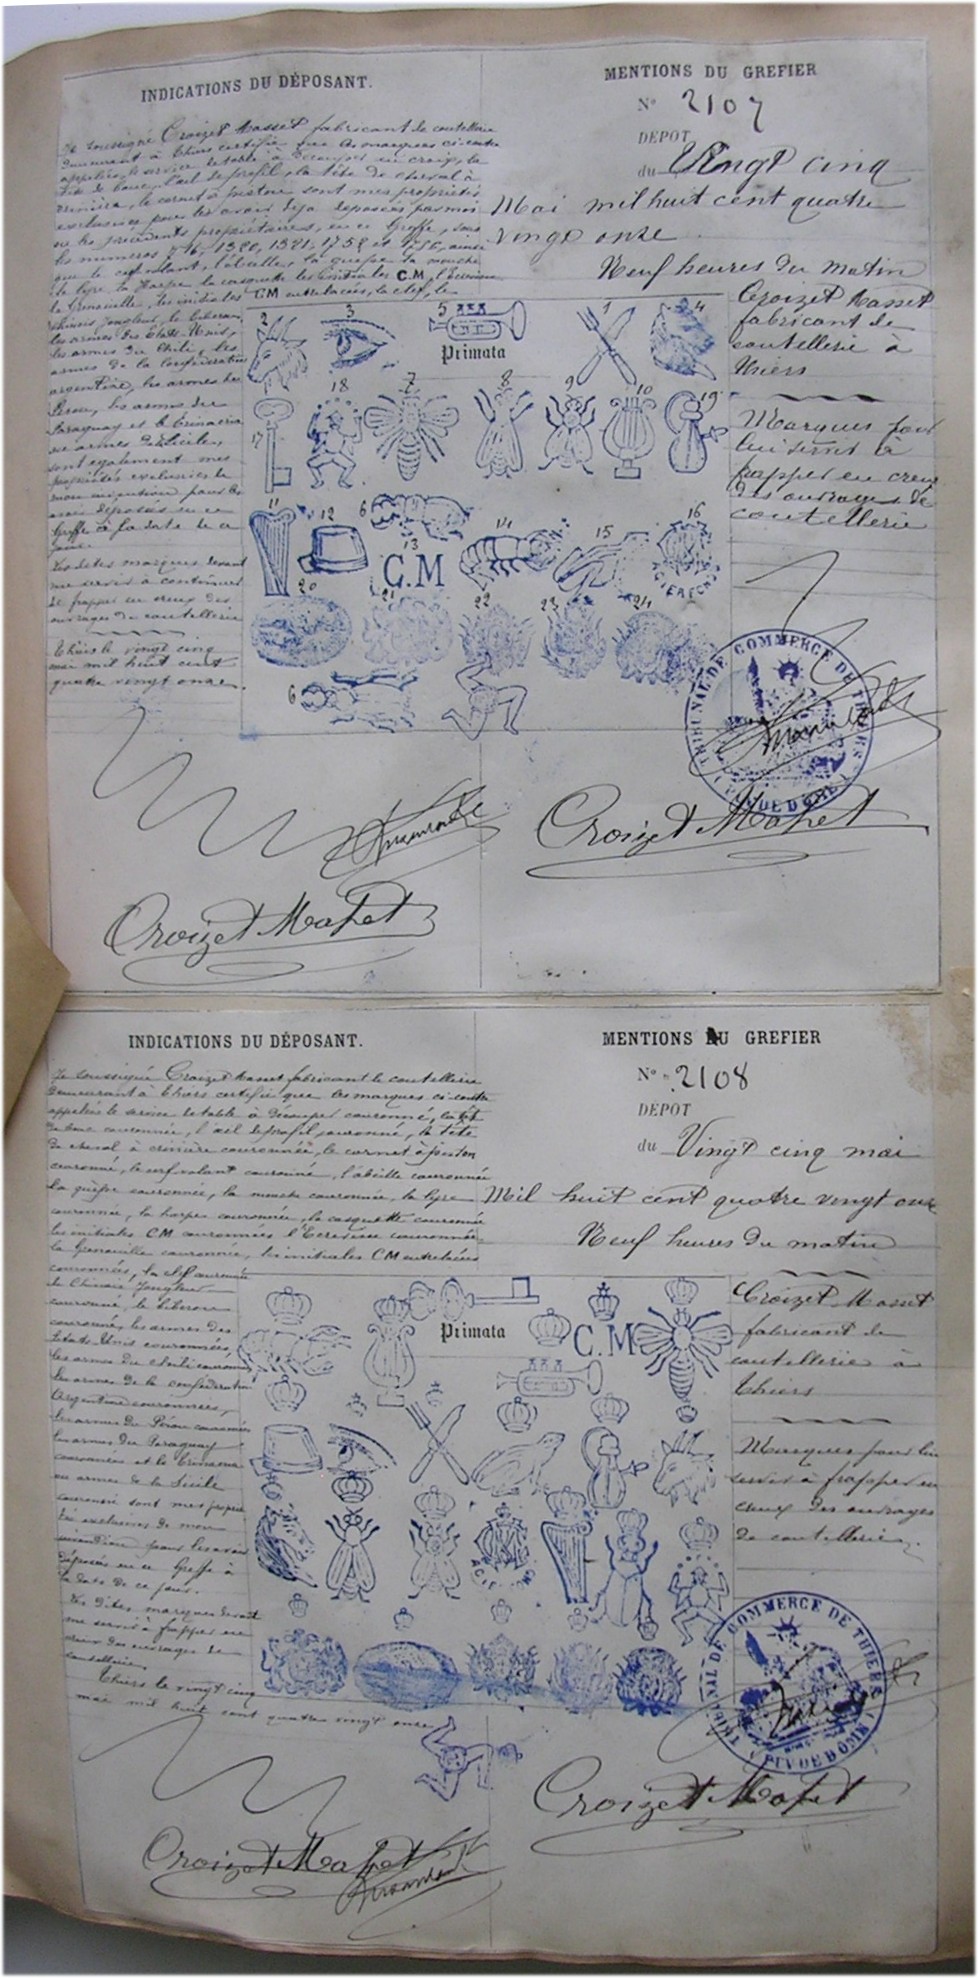 INDICATIONS DU DÉPOSANT.
Je soussigné Croizet Masset fabricant de coutellerie
demeurant à Thiers certifie que les marques ci-contre
appelées, le service de table à découper en croix, la
tête de bouc, l'œil de profil, la tête de cheval à
crinière, le cornet à piston sont mes propriétés
exclusives pour les avoir déjà déposées par moi
ou les précédents propriétaires, en ce Greffe, sous
les numéros 1380, 1381, 1758 et ainsi
que le cerf volant, l'abeille, la guêpe la mouche
la lyre, la Harpe, la casquette les initiales C.M, l'Ecrevisse
la Grenouille, les initiales CM entrelacées, la clef, le
chinois jongleur, le biberon,
les armes des Etats-Unis,
les armes du Chili, les
armes de la confédération
argentine, les armes du
Pérou, les armes du
Paraguay et la trinacria
ou armes de Sicile,
sont également mes
propriétés exclusives de
mon invention pour les
avoir déposées en ce
Greffe à la date de ce
jour.
Les dites marques devant
me servir à continuer
de frapper en creux des
ouvrages de coutellerie
Thiers le vingt cinq
mai mil huit cent
quatre vingt onze.
Croizet Masset
MENTIONS DU GREFIER
N° 2107
DÉPOT
du Vingt cinq
Mai mil huit cent quatre
vingt onze
Neuf heures du matin
Croizet Masset
fabricant de
coutellerie à
Thiers
Marques pour
lui servir à
frapper en creux
des ouvrages de
coutellerie
2 3 5 1 4
Primata
18 7 8 9 10 19
17
11 12 6 13 14 15 16
C.M
20 21 22 23 24
6
TRIBUNAL DE COMMERCE DE THIERS
( PUY DE DÔME )
Croizet Masset
INDICATIONS DU DÉPOSANT.
Je soussigné Croizet Masset fabricant de coutellerie
demeurant à Thiers certifie que les marques ci-contre
appelées le service de table à découper couronné, la tête
de bouc couronnée, l'œil de profil couronné, la tête
de cheval à crinière couronnée, le cornet à piston
couronné, le cerf volant couronné, l'abeille couronnée
la guêpe couronnée, la mouche couronnée, la lyre
couronnée, la harpe couronnée, la casquette couronnée
les initiales CM couronnées l'Ecrevisse couronnée
la Grenouille couronnée, les initiales CM entrelacées
couronnées, la clef couronnée
le Chinois Jongleur
couronné, le biberon
couronné, les armes des
Etats Unis couronnées,
les armes du chili couronnées
les armes de la confédération
Argentine couronnées,
les armes du Pérou couronnées
les armes du Paraguay
couronnées et la trinacria
ou armes de la Sicile
couronné sont mes propriétés
exclusives de mon
invention pour les avoir
déposées en ce Greffe à
la date de ce jour.
Les dites marques devant
me servir à frapper en
creux des ouvrages de
coutellerie
Thiers le vingt cinq
mai mil huit cent quatre vingt onze
Croizet Masset
MENTIONS DU GREFIER
N° 2108
DÉPOT
du Vingt cinq mai
Mil huit cent quatre vingt onze
Neuf heures du matin
Croizet Masset
fabricant de
coutellerie à
Thiers
Marques pour lui
servir à frapper en
creux des ouvrages
de coutellerie.
Primata
C.M
TRIBUNAL DE COMMERCE DE THIERS
( PUY DE DOME )
Croizet Masset